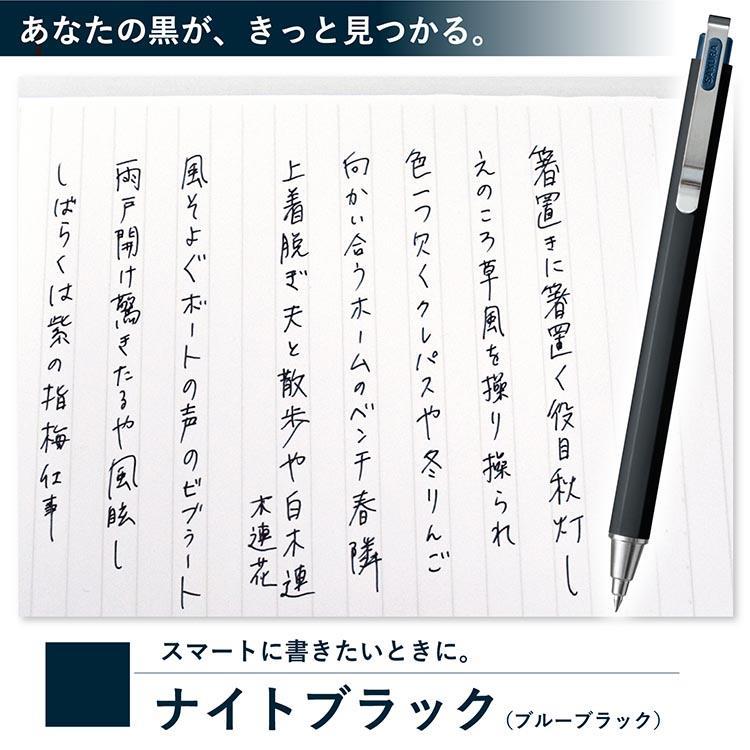 あなたの黒が、きっと見つかる。
SAKURA
箸置きに箸置く役目秋灯し
えのころ草風を操り操られ
色一つ欠くクレパスや冬りんご
向かい合うホームのベンチ春隣
上着脱ぎ夫と散歩や白木連
木連花
風そよぐボートの声のビブラート
雨戸開け驚きたるや風眩し
しばらくは紫の指梅仕事
スマートに書きたいときに。
ナイトブラック（ブルーブラック）